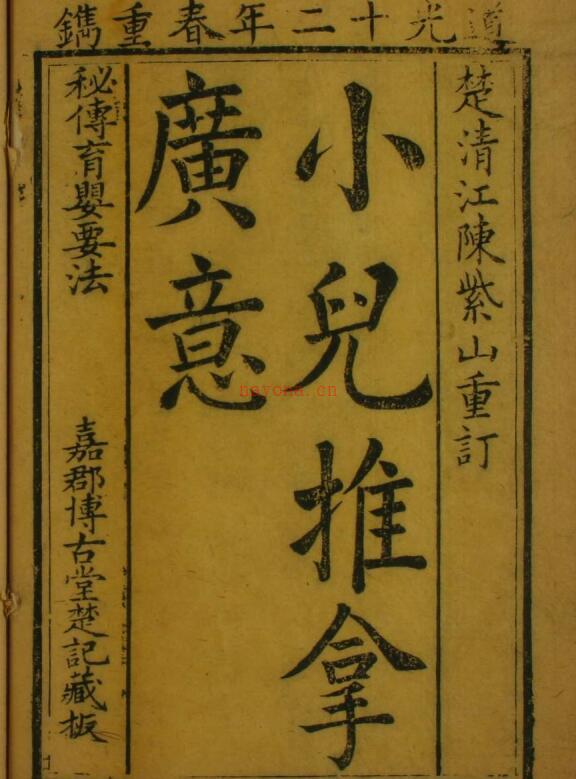 道光十二年春重鐫
楚清江陳紫山重訂
小兒推拿
廣意
秘傳育嬰要法
嘉郡博古堂楚記藏板
hayona.cn